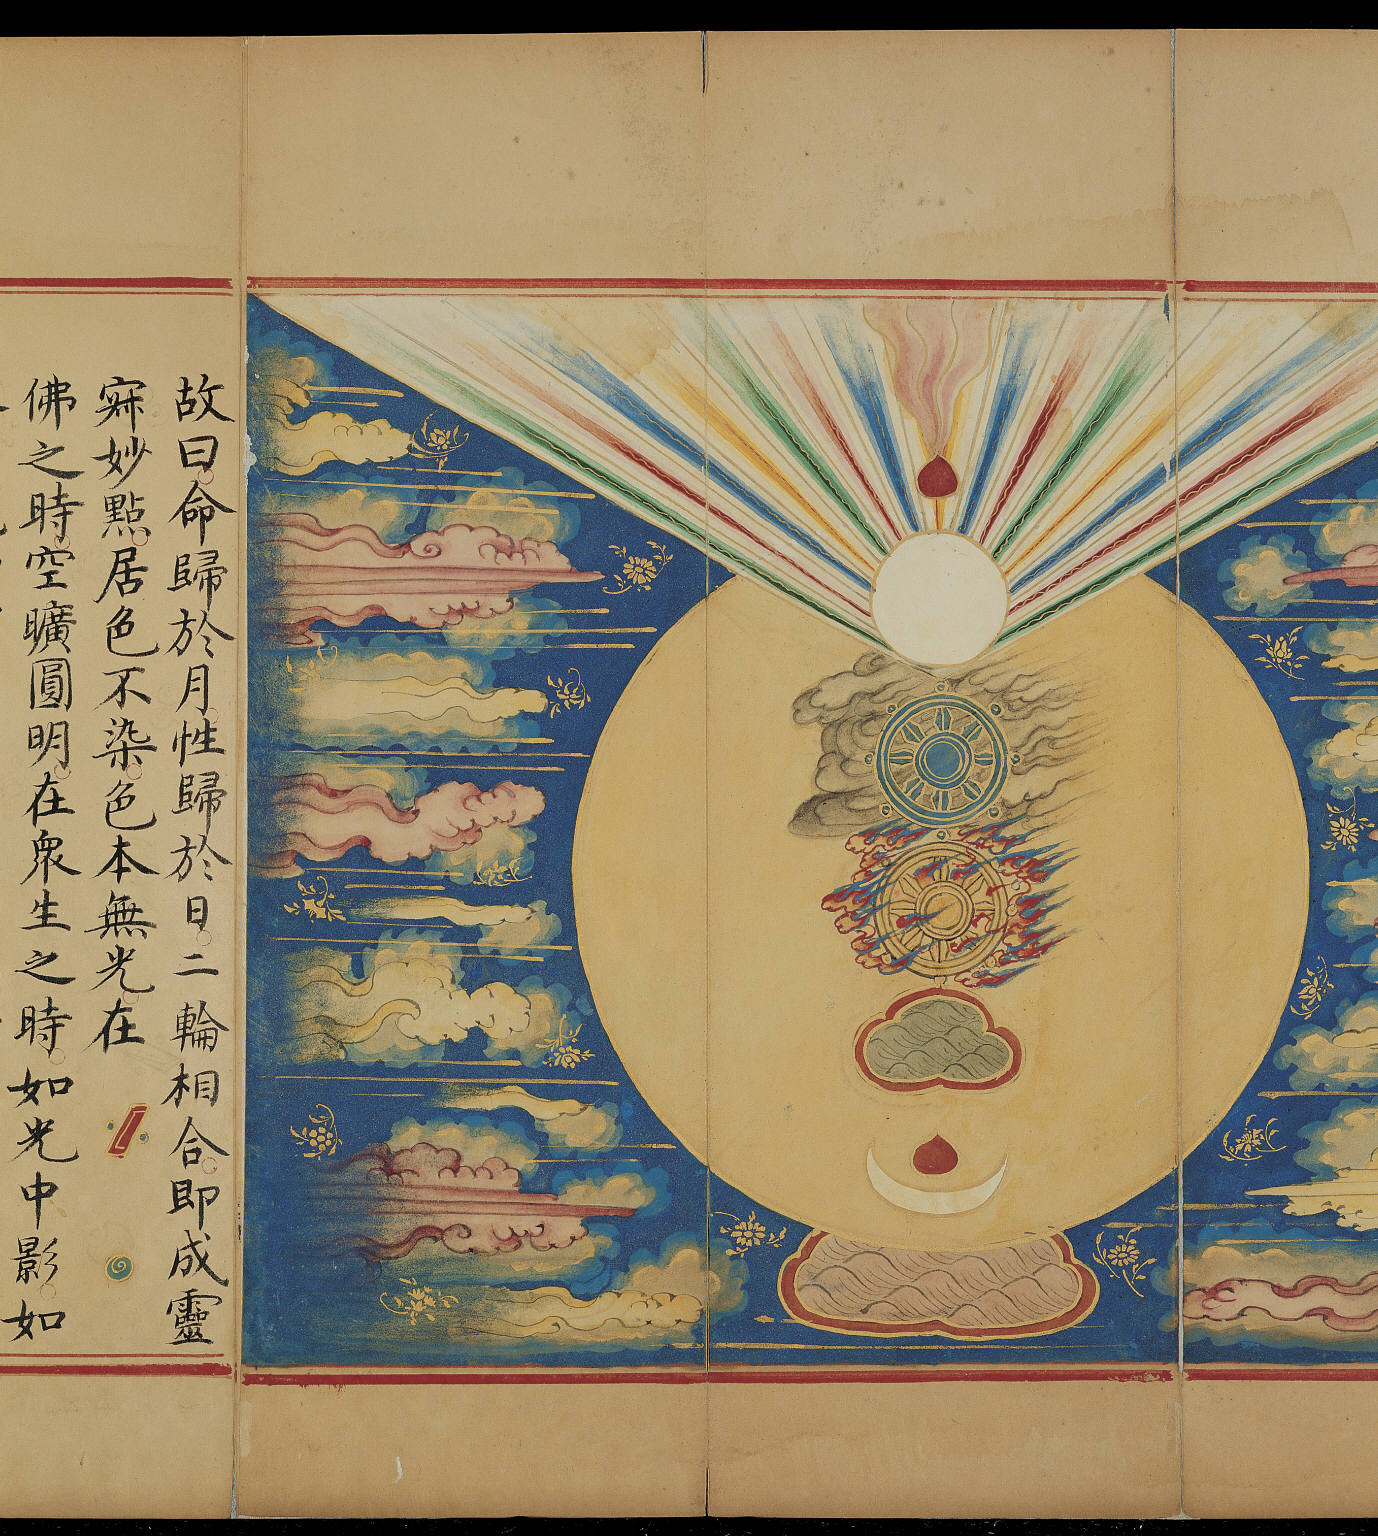 故曰命歸於月性歸於日二輪相合即成靈
㝥妙點居色不染色本無光在
佛之時空曠圓明在衆生之時如光中影如